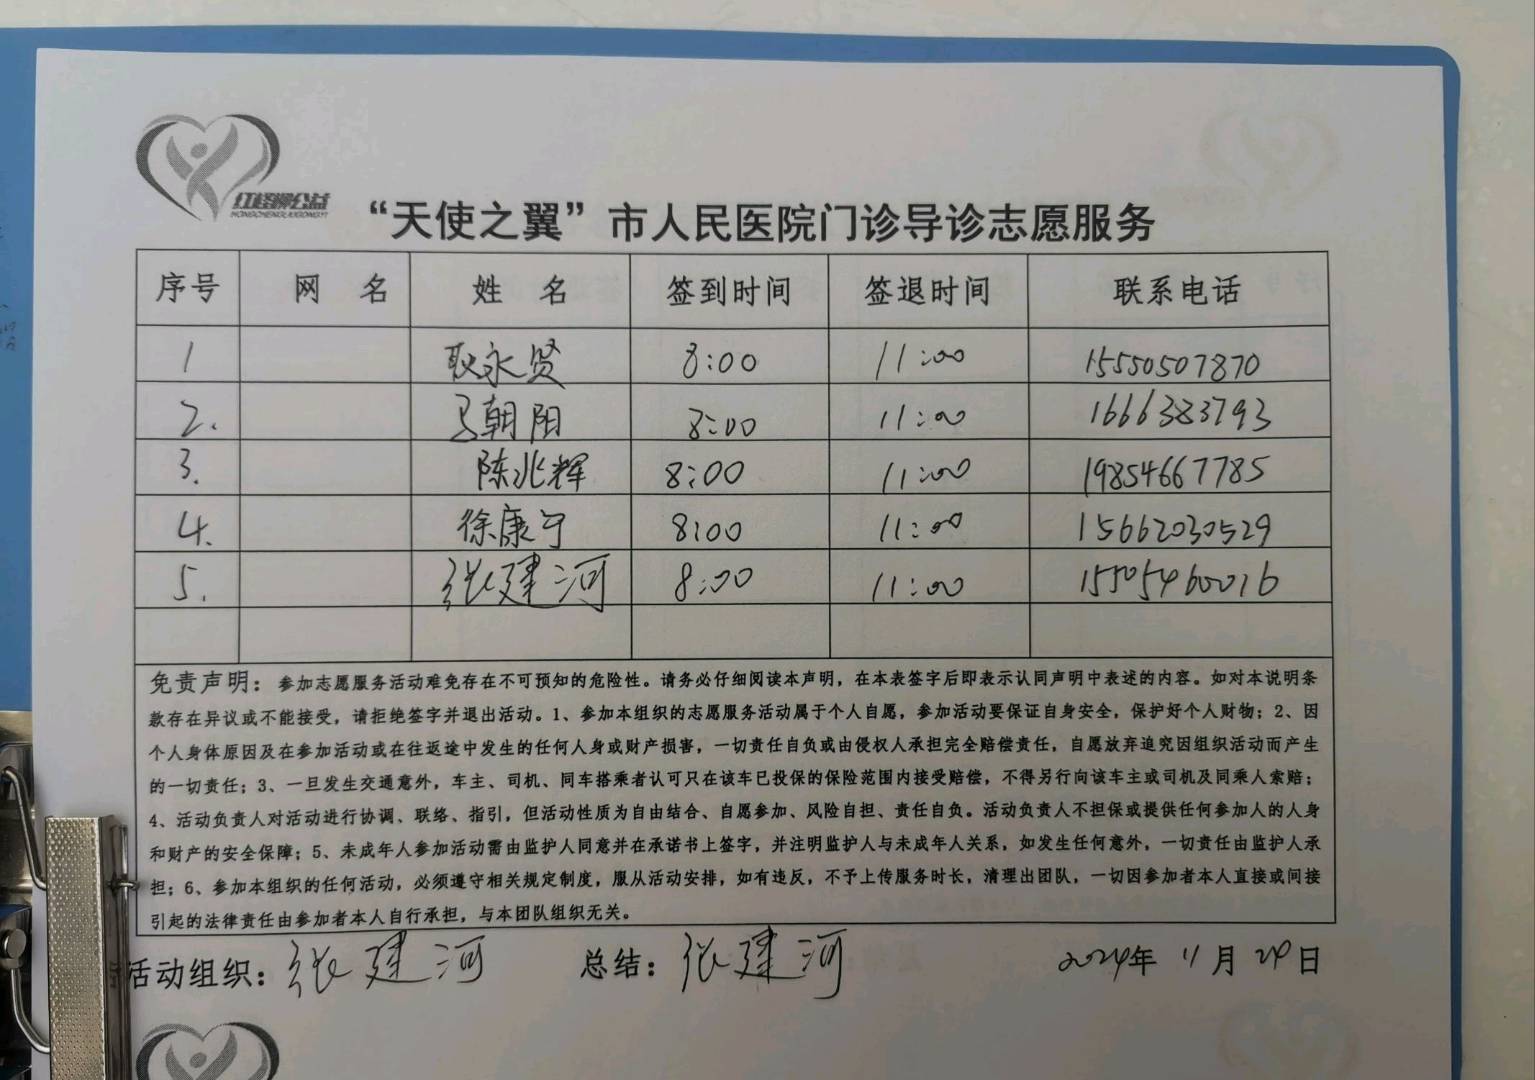 红柽柳公益
HONGCHENGLIUGONGYI
“天使之翼”市人民医院门诊导诊志愿服务
序号 网 名 姓 名 签到时间 签退时间 联系电话
1 耿永贤 8:00 11:00 15550507870
2. 马朝阳 8:00 11:00 1666383793
3. 陈兆辉 8:00 11:00 19854667785
4. 徐康宁 8:00 11:00 15662030529
5. 张建河 8:00 11:00 15505460016
免责声明：参加志愿服务活动难免存在不可预知的危险性。请务必仔细阅读本声明，在本表签字后即表示认同声明中表述的内容。如对本说明条
款存在异议或不能接受，请拒绝签字并退出活动。1、参加本组织的志愿服务活动属于个人自愿，参加活动要保证自身安全，保护好个人财物；2、因
个人身体原因及在参加活动或在往返途中发生的任何人身或财产损害，一切责任自负或由侵权人承担完全赔偿责任，自愿放弃追究因组织活动而产生
的一切责任；3、一旦发生交通意外，车主、司机、同车搭乘者认可只在该车已投保的保险范围内接受赔偿，不得另行向该车主或司机及同乘人索赔；
4、活动负责人对活动进行协调、联络、指引，但活动性质为自由结合、自愿参加、风险自担、责任自负。活动负责人不担保或提供任何参加人的人身
和财产的安全保障；5、未成年人参加活动需由监护人同意并在承诺书上签字，并注明监护人与未成年人关系，如发生任何意外，一切责任由监护人承
担；6、参加本组织的任何活动，必须遵守相关规定制度，服从活动安排，如有违反，不予上传服务时长，清理出团队，一切因参加者本人直接或间接
引起的法律责任由参加者本人自行承担，与本团队组织无关。
活动组织：张建河 总结：张建河 2024年 11月 24日